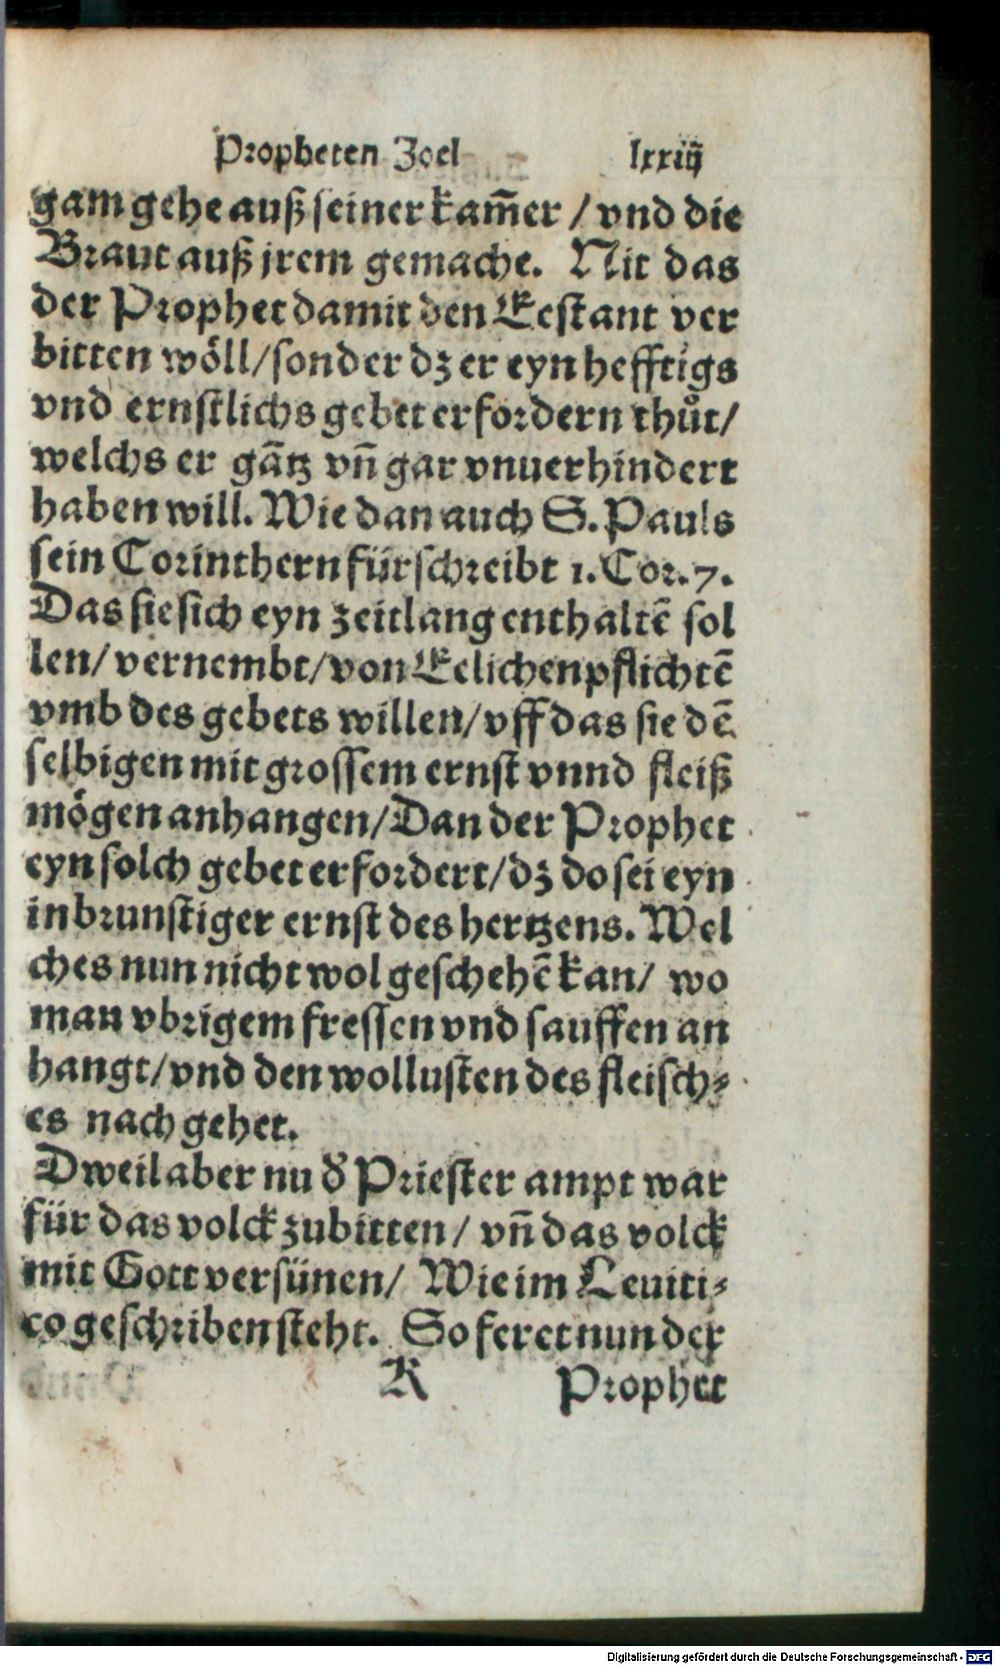 Propheten Joel lxxiij
gam gehe auß seiner kam̃er / vnd die
Braut auß jrem gemache. Nit das
der Prophet damit den Eestant ver
bitten wöll/ sonder dz er eyn hefftigs
vnd ernstlichs gebet erfordern thůt/
welchs er gãtz vñ gar vnuerhindert
haben will. Wie dan auch S. Pauls
sein Corinthern fürschreibt 1. Cor. 7.
Das sie sich eyn zeitlang enthaltẽ sol
len/ vernembt/ von Eelichen pflichtẽ
vmb des gebets willen/ vff das sie dẽ
selbigen mit grossem ernst vnnd fleiß
mögen anhangen/ Dan der Prophet
eyn solch gebet erfordert/ dz do sei eyn
inbrunstiger ernst des hertzens. Wel
ches nun nicht wol geschehẽ kan/ wo
man vbrigem fressen vnd sauffen an
hangt/ vnd den wollusten des fleisch⸗
es nach gehet.
Dweil aber nu d̕ Priester ampt war
für das volck zubitten / vñ das volck
mit Gott versünen/ Wie im Leuiti⸗
co geschriben steht. So feret nun der
K Prophet
Digitalisierung gefördert durch die Deutsche Forschungsgemeinschaft - DFG